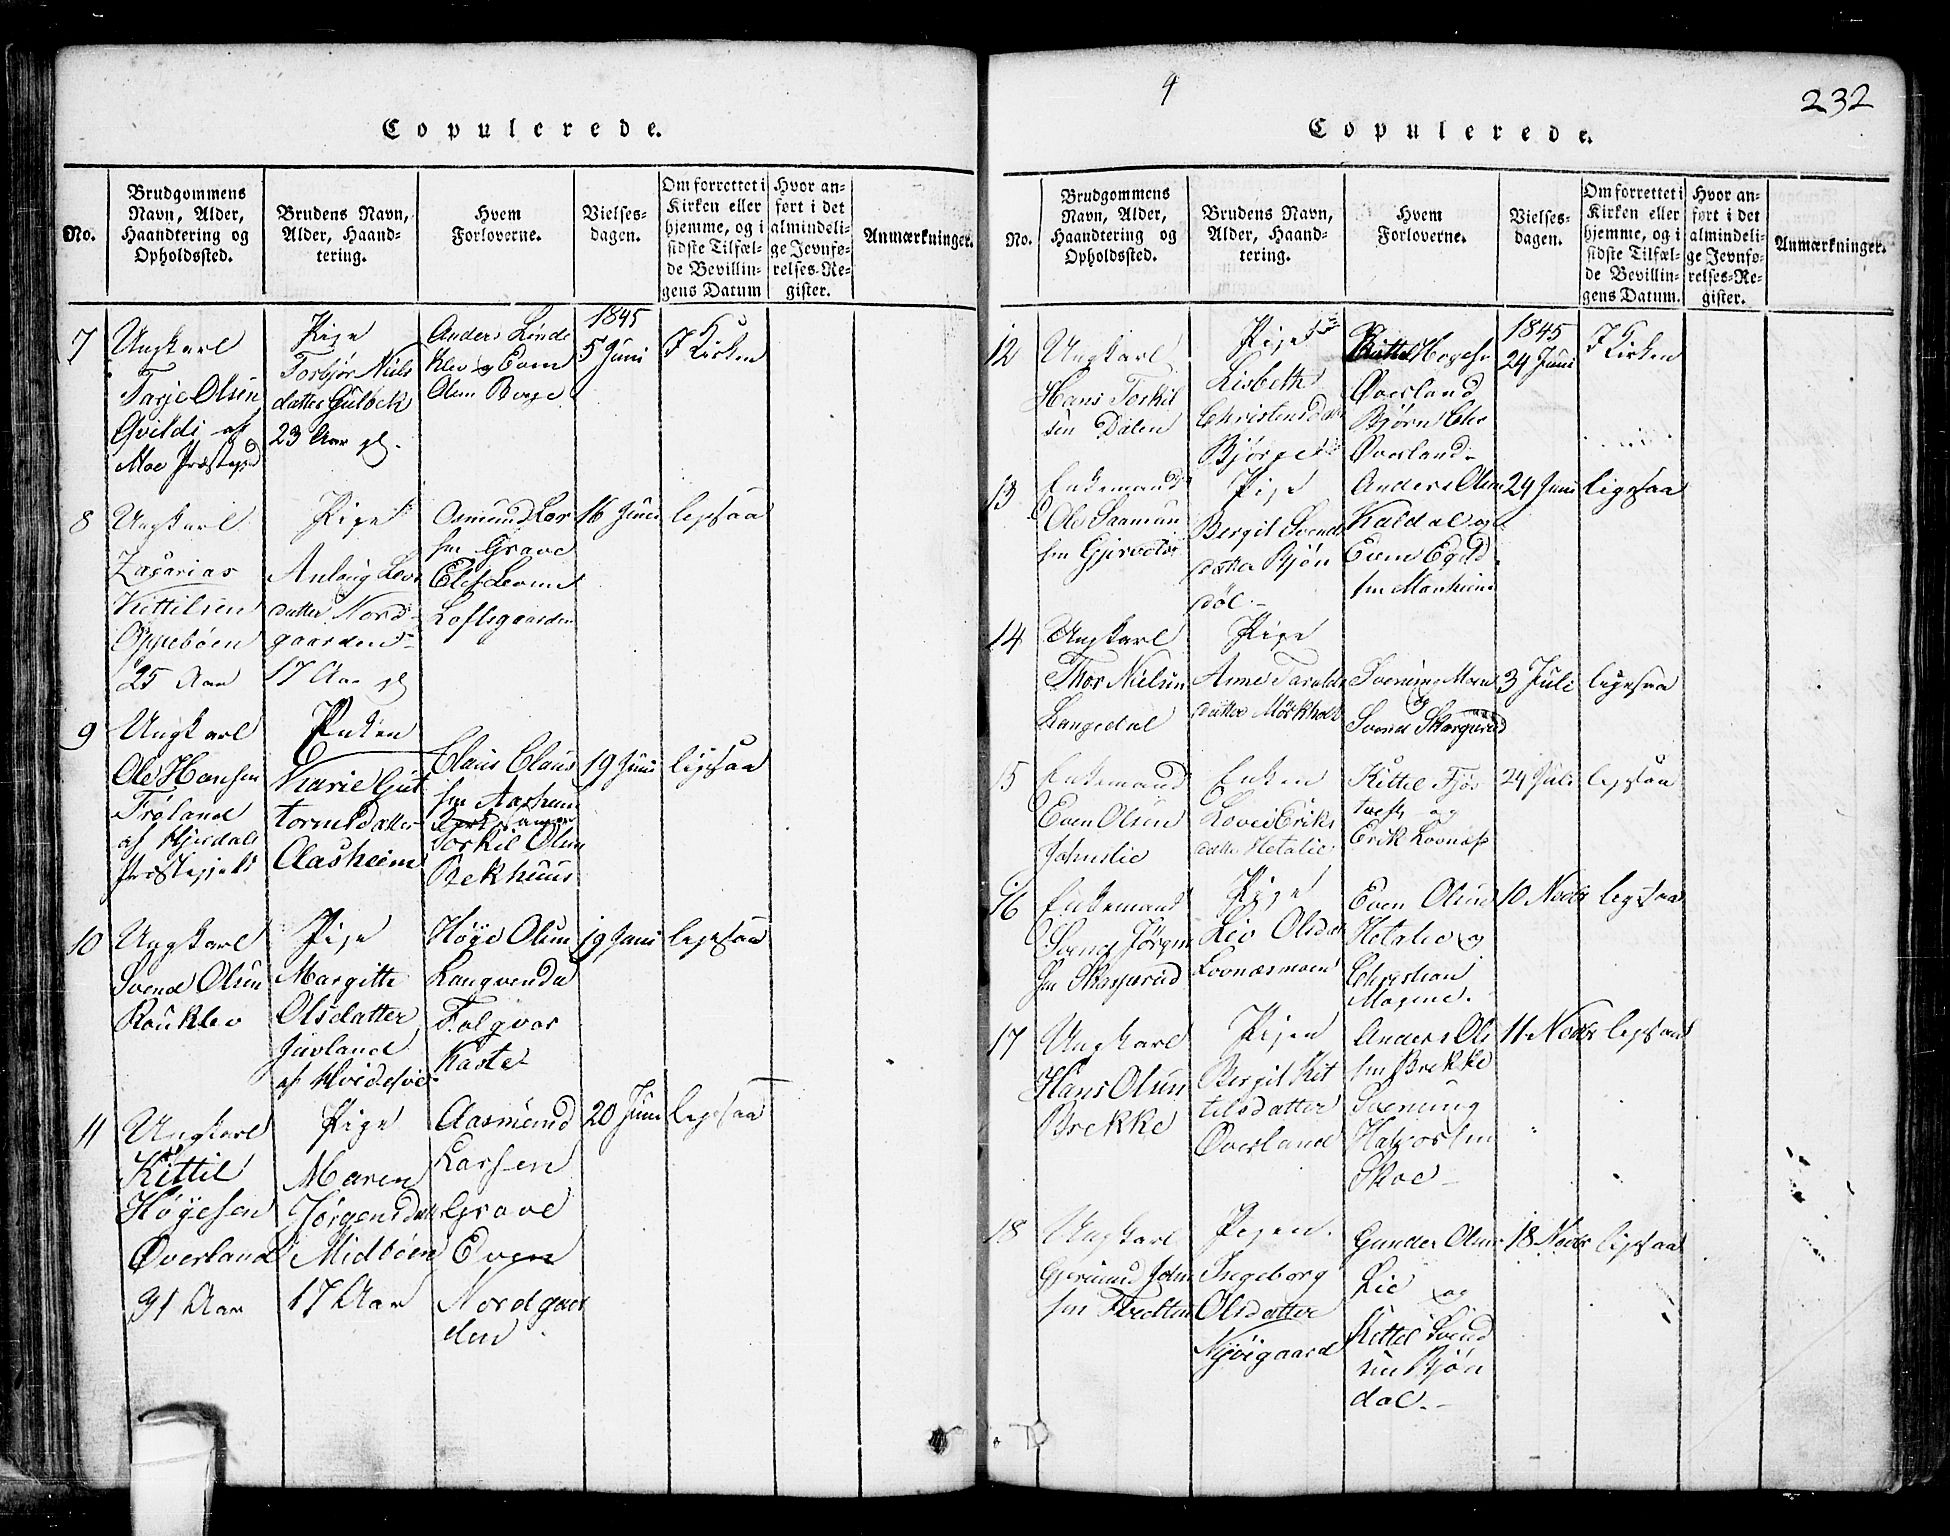 Copulerede.
No.
Brudgommens
Navn, Alder,
Haandtering og
Opholdssted.
Brudens Navn,
Alder, Haand-
tering.
Hvem
Forloverne.
Vielses-
dagen.
Om forrettet i
Kirken eller
hjemme, og i
sidste Tilfæl-
de Bevillin-
gens Datum
Hvor an-
ført i det
almindeli-
ge Jevnfø-
relses-Re-
gister.
Anmærkninger.
7
Ungkarl
Tarje Olsen
Qvildi af
Moe Præstegjd
Pige
Torbjør Niels
datter Gulbek
23 Aar gl.
Anders Lønde
klev og Even
Olsen Berge
1845
5 Juni
I Kirken
8
Ungkarl
Zacarias
Kittilsen
Oppebøen
25 Aar
Pige
Anlaug Levo
datter Nord-
gaarden
17 Aar gl
Osmund Lar
sen Grave
Elef
Loftsgaarden
16 Juni
ligesaa
9
Ungkarl
Ole Hansen
Frøland
af Hjerdals
Præstegjeld
Enken
Karie Gut
tormsdatter
Aasheim
Claus Claus
sen Aasheim
Torkil Olsen
Bekhuus
19 Juni
ligesaa
10
Ungkarl
Svend Olsen
Rouklev
Pige
Margitte
Olsdatter
Juvland
af Hvideseie
Høye Olsen
Langvenda
Folqvar
Kaste
19 Juni
ligesaa
11
Ungkarl
Kittil
Høyesen
Øverland
31 Aar
Pige
Maren
Jørgensdatt
Midbøen
17 Aar
Aasmund
Larsen
Grave
Even
Nordgaar
den
20 Juni
ligesaa
4
232
Copulerede.
No.
Brudgommens
Navn, Alder,
Haandtering og
Opholdssted.
Brudens Navn,
Alder, Haand-
tering.
Hvem
Forloverne.
Vielses-
dagen.
Om forrettet i
Kirken eller
hjemme, og i
sidste Tilfæl-
de Bevillin-
gens Datum.
Hvor an-
ført i det
almindeli-
ge Jevnfø-
relses-Re-
gister.
Anmærkninger.
12
Ungkarl
Hans Torkil
sen Dalen
Pige
Lisbeth
Christensdatt
Bjørge
Kittel Høgesen
Øverland
Bjørn
Øverland
1845
24 Juni
I Kirken
13
Enkemand
Ole Saamun
sen Gjervolds
Pige
Bergit Svends
datter Bjøn
døl
Anders Olsen
Kaldal og
Even Egild
sen Manheim
24 Juni
ligesaa
14
Ungkarl
Thor Nielsen
Langedal
Pige
Anne Taralds
datter Mørkhol
Svenung Moen
og
Svend Skargerud
3 Juli
ligesaa
15
Enkemand
Even Olsen
Johnslie
Enken
Lovei Eriks
datter Hetalie
Kittel Fjøs
tvest og
Erik Lovnæs
24 Juli
ligesaa
16
Enkemand
Svend Jørgen
sen Skarperud
Pige
Liv Olsdat
Lovnæsmoen
Even Olsen
Hetalie og
Christian
Mogene.
10 Novbr
ligesaa
17
Ungkarl
Hans Olsen
Brekke
Pigen
Bergit Kit
tilsdatter
Øverland
Anders Ol
sen Brekke
Svenung
Halvorsen
Skoe
11 Novbr
ligesaa
18
Ungkarl
Gjermund John
sen Tvedten
Pigen.
Ingeborg
Olsdatter
Nyøigaard
Gunder Olsen
Lie og
Kittel Svend
sen Bjøn
dal.
18 Novbr
ligesaa